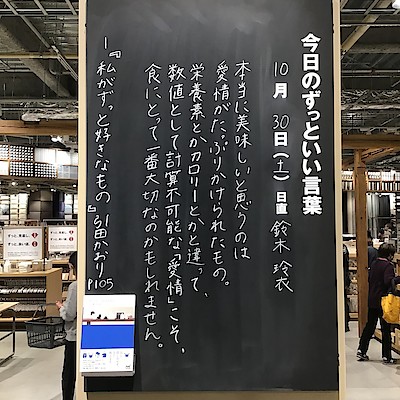 今日のずっといい言葉
10月 30日(土) 日直 鈴木 玲衣
本当に美味しいと思うのは
愛情がたっぷりかけられたもの。
栄養素とかカロリーとかと違って、
数値として計算不可能な「愛情」こそ、
食にとって一番大切なのかもしれません。
―『私がずっと好きなもの』引田かおり P105